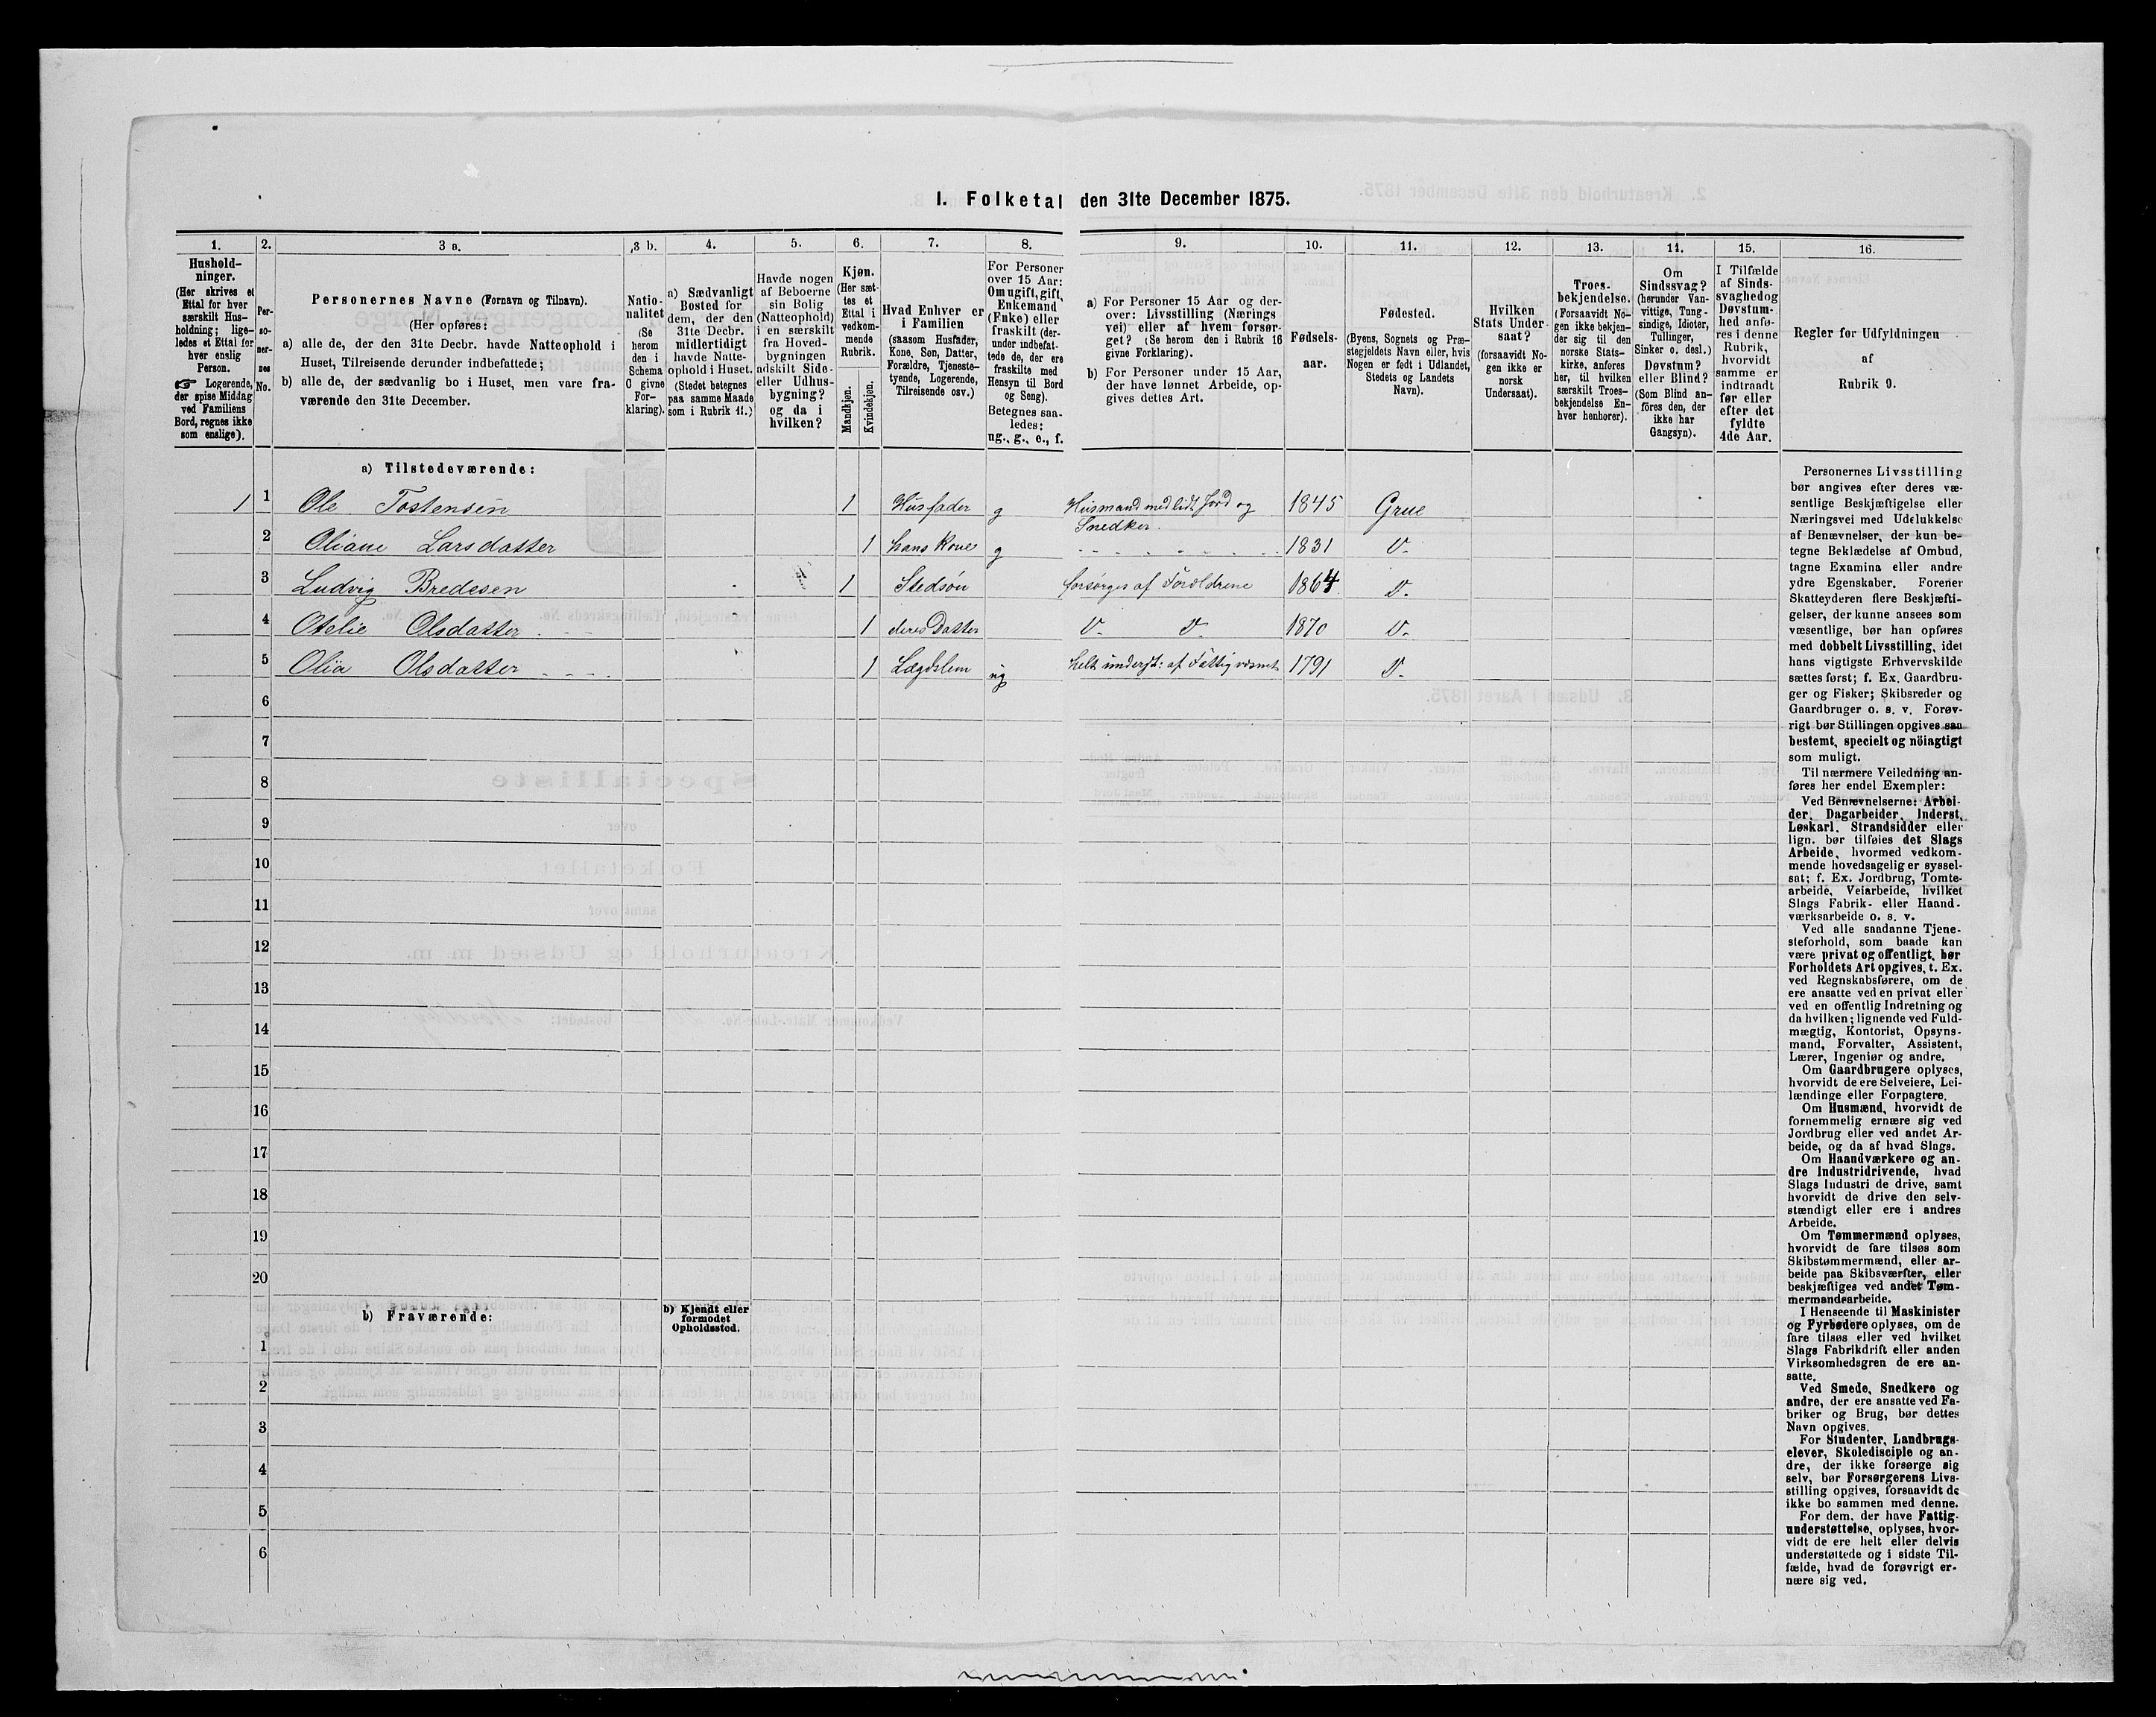 I. Folketal den 31te December 1875.
1.
2.
3 a.
3 b.
4.
5.
6.
7.
8.
9.
10.
11.
12.
13.
14.
15.
16.
Hushold-
ninger.
(Her skrives et
Ettal for hver
særskilt Hus-
holdning; lige-
ledes et Ettal for
hver enslig
Person.
☞ Logerende,
der spise Middag
ved Familiens
Bord, regnes ikke
som enslige).
Per-
so-
ner-
nes
No.
Personernes Navne (Fornavn og Tilnavn).
(Her opføres:
a) alle de, der den 31te Decbr. havde Natteophold i
Huset, Tilreisende derunder indbefattede;
b) alle de, der sædvanlig bo i Huset, men vare fra-
værende den 31te December.
Natio-
nalitet
(Se
herom
den i
Schema
C givne
For-
klaring).
a) Sædvanligt
Bosted for
dem, der den
31te Decbr.
midlertidigt
havde Natte-
ophold i Huset.
(Stedet betegnes
paa samme Maade
som i Rubrik 11.)
Havde nogen
af Beboerne
sin Bolig
(Natteophold)
i en særskilt
fra Hoved-
bygningen
adskilt Side-
eller Udhus-
bygning?
og da i
hvilken?
Kjøn.
(Her sæt-
tes et
Ettal i
vedkom-
mende
Rubrik.
Mandkjøn.
Kvindekjøn.
Hvad Enhver er
i Familien
(saasom Husfader,
Kone, Søn, Datter,
Forældre, Tjeneste-
tyende, Logerende,
Tilreisende osv.)
For Personer
over 15 Aar:
Om ugift, gift,
Enkemand
(Enke) eller
fraskilt (der-
under indbefat-
tede de, der ere
fraskilte med
Hensyn til Bord
og Seng).
Betegnes saa-
ledes:
ug., g., e., f.
a) For Personer 15 Aar og der-
over: Livsstilling (Nærings
vei) eller af hvem forsør-
get? (Se herom den i Rubrik 16
givne Forklaring).
b) For Personer under 15 Aar,
der have lønnet Arbeide, op-
gives dettes Art.
Fødsels-
aar.
Fødested.
(Byens, Sognets og Præ-
stegjeldets Navn eller, hvis
Nogen er født i Udlandet,
Stedets og Landets
Navn).
Hvilken
Stats Under-
saat?
(forsaavidt No-
gen ikke er
norsk
Undersaat).
Troes-
bekjendelse.
(Forsaavidt No-
gen ikke bekjen-
der sig til den
norske Stats-
kirke, anføres
her, til hvilken
særskilt Troes-
bekjendelse En-
hver henhører).
Om
Sindssvag?
(herunder Van-
vittige, Tung-
sindige, Idioter,
Tullinger,
Sinker o. desl.)
Døvstum?
eller Blind?
(Som Blind an-
föres den, der
ikke har
Gangsyn).
I Tilfælde
af Sinds-
svaghed og
Døvstum-
hed anfø-
res i denne
Rubrik,
hvorvidt
samme er
indtraadt
før eller
efter det
fyldte
4de Aar.
Regler for Udfyldningen
af
Rubrik 9.
a) Tilstedeværende:
1 1 Ole Tostensen 1 Husfader g Husmand med lidt Jord og Snedker. 1845 Grue
2 Oliane Larsdatter 1 hans Kone g - - - - - - 1831 D-
3 Ludvig Bredesen 1 Stedsøn forsørges af Forældrene 1864 D-
4 Otelie Olsdatter 1 deres Datter D- D- 1870 D-
5 Olia Olsdatter 1 Lægdslem ug helt underst: af Fattigvæsnet 1791 D-
6
7
8
9
10
11
12
13
14
15
16
17
18
19
20
b) Fraværende:
b) Kjendt eller
formodet
Opholdssted.
1
2
3
4
5
6
Personernes Livsstilling
bør angives efter deres væ-
sentlige Beskjæftigelse eller
Næringsvei med Udelukkelse
af Benævnelser, der kun be-
tegne Beklædelse af Ombud,
tagne Examina eller andre
ydre Egenskaber. Forener
Skatteyderen flere Beskjæfti-
gelser, der kunne ansees som
væsentlige, bør han opføres
med dobbelt Livsstilling, idet
hans vigtigste Erhvervskilde
sættes først; f. Ex. Gaardbru-
ger og Fisker; Skibsreder og
Gaardbruger o. s. v. Forøv-
rigt bør Stillingen opgives saa
bestemt, specielt og nöiagtigt
som muligt.
Til nærmere Veiledning an-
føres her endel Exempler:
Ved Benævnelserne: Arbei-
der, Dagarbeider, Inderst,
Løskarl, Strandsidder eller
lign. bør tilføies det Slags
Arbeide, hvormed vedkom-
mende hovedsagelig er syssel-
sat; f. Ex. Jordbrug, Tomte-
arbeide, Veiarbeide, hvilket
Slags Fabrik- eller Haand-
værksarbeide o. s. v.
Ved alle saadanne Tjene-
steforhold, som baade kan
være privat og offentligt, bør
Forholdets Art opgives, t. Ex.
ved Regnskabsførere, om de
ere ansatte ved en privat eller
ved en offentlig Indretning og
da hvilken; lignende ved Fuld-
mægtig, Kontorist, Opsyns-
mand, Forvalter, Assistent,
Lærer, Ingeniør og andre.
Om Gaardbrugere oplyses,
hvorvidt de ere Selveiere, Lei-
lændinge eller Forpagtere.
Om Husmænd, hvorvidt de
fornemmelig ernære sig ved
Jordbrug eller ved andet Ar-
beide, og da af hvad Slags.
Om Haandværkere og an-
dre Industridrivende, hvad
Slags Industri de drive, samt
hvorvidt de drive den selv-
stændigt eller ere i andres
Arbeide.
Om Tømmermænd oplyses,
hvorvidt de fare tilsøs som
Skibstømmermænd, eller ar-
beide paa Skibsværfter, eller
beskjæftiges ved andet Tøm-
mermandsarbeide.
I Henseende til Maskinister
og Fyrbødere oplyses, om de
fare tilsøs eller ved hvilket
Slags Fabrikdrift eller anden
Virksomhedsgren de ere an-
satte.
Ved Smede, Snedkere og
andre, der ere ansatte ved Fa-
briker og Brug, bør dettes
Navn opgives.
For Studenter, Landbrugs-
elever, Skoledisciple og an-
dre, der ikke forsørge sig
selv, bør Forsørgerens Livs-
stilling opgives, forsaavidt de
ikke bo sammen med denne.
For dem, der have Fattig-
understøttelse, oplyses, hvor-
vidt de ere helt eller delvis
understøttede og i sidste Til-
fælde, hvad de forøvrigt er-
nære sig ved.